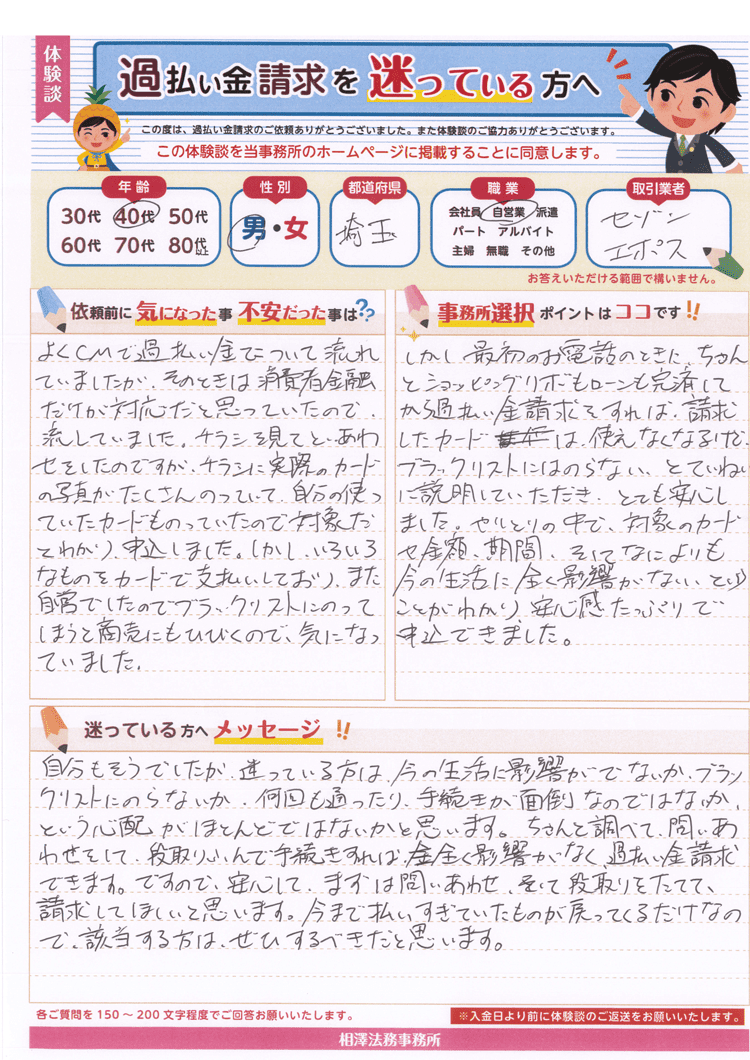 体験談
過払い金請求を迷っている方へ
この度は、過払い金請求のご依頼ありがとうございました。また体験談のご協力ありがとうございます。
この体験談を当事務所のホームページに掲載することに同意します。
年齢
30代 40代 50代
60代 70代 80代以上
性別
男・女
都道府県
埼玉
職業
会社員 自営業 派遣
パート アルバイト
主婦 無職 その他
取引業者
セゾン
エポス
お答えいただける範囲で構いません。
依頼前に気になった事 不安だった事は??
よくCMで過払い金について流れ
ていましたが、そのときは消費者金融
だけが対応だと思っていたので、
流していました。チラシを見てといあわ
せをしたのですが、チラシに実際のカード
の写真がたくさんのっていて、自分の使っ
ていたカードものっていたので対象だ
とわかり、申込しました。しかし、いろいろ
なものをカードで支払いしており、また
自営でしたのでブラックリストにのって
しまうと商売にもひびくので、気になっ
ていました。
事務所選択ポイントはココです!!
しかし最初のお電話のときに、ちゃん
とショッピングリボもローンも完済して
から過払い金請求をすれば、請求
したカードは、使えなくなるけど、
ブラックリストにはのらない、とていねい
に説明していただき、とても安心し
ました。やりとりの中で、対象のカード
や金額、期間、そしてなによりも
今の生活に全く影響がない、という
ことがわかり、安心感たっぷりで
申込できました。
迷っている方へメッセージ!!
自分もそうでしたが、迷っている方は、今の生活に影響がでないか、ブラッ
クリストにのらないか、何回も通ったり、手続きが面倒なのではないか、
という心配がほとんどではないかと思います。ちゃんと調べて、問いあ
わせをして、段取りふんで手続きすれば、全く影響がなく、過払い金請求
できます。ですので、安心して、まずは問いあわせ、そして段取りをたてて、
請求してほしいと思います。今まで払いすぎていたものが戻ってくるだけなの
で、該当する方は、ぜひするべきだと思います。
各ご質問を150～200文字程度でご回答お願いいたします。
※入金日より前に体験談のご返送をお願いいたします。
相澤法務事務所